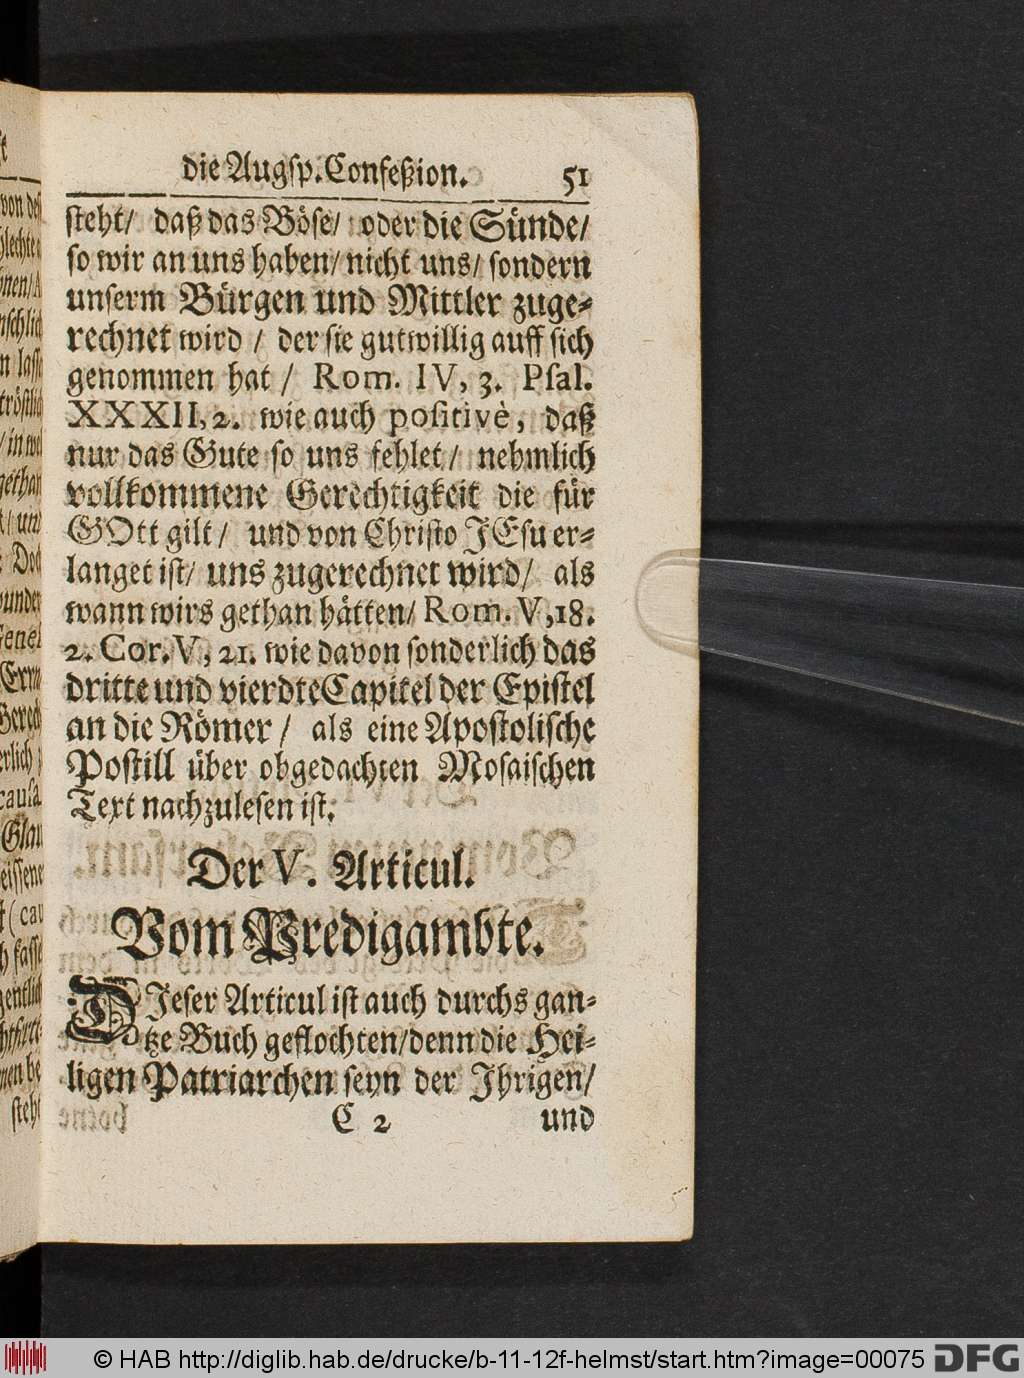 die Augsp. Confeßion. 51
steht/ daß das Böse/ oder die Sünde/
so wir an uns haben/ nicht uns/ sondern
unserm Bürgen und Mittler zuge-
rechnet wird / der sie gutwillig auff sich
genommen hat / Rom. IV, 3. Psal.
XXXII, 2. wie auch positivè, daß
nur das Gute so uns fehlet/ nehmlich
vollkommene Gerechtigkeit die für
GOtt gilt/ und von Christo JEsu er-
langet ist/ uns zugerechnet wird/ als
wann wirs gethan hätten/ Rom. V, 18.
2. Cor. V, 21. wie davon sonderlich das
dritte und vierdte Capitel der Epistel
an die Römer / als eine Apostolische
Postill über obgedachten Mosaischen
Text nachzulesen ist.
Der V. Articul.
Vom Predigambte.
DJeser Articul ist auch durchs gan-
tze Buch geflochten/ denn die Hei-
ligen Patriarchen seyn der Jhrigen/
C 2 und
© HAB http://diglib.hab.de/drucke/b-11-12f-helmst/start.htm?image=00075 DFG